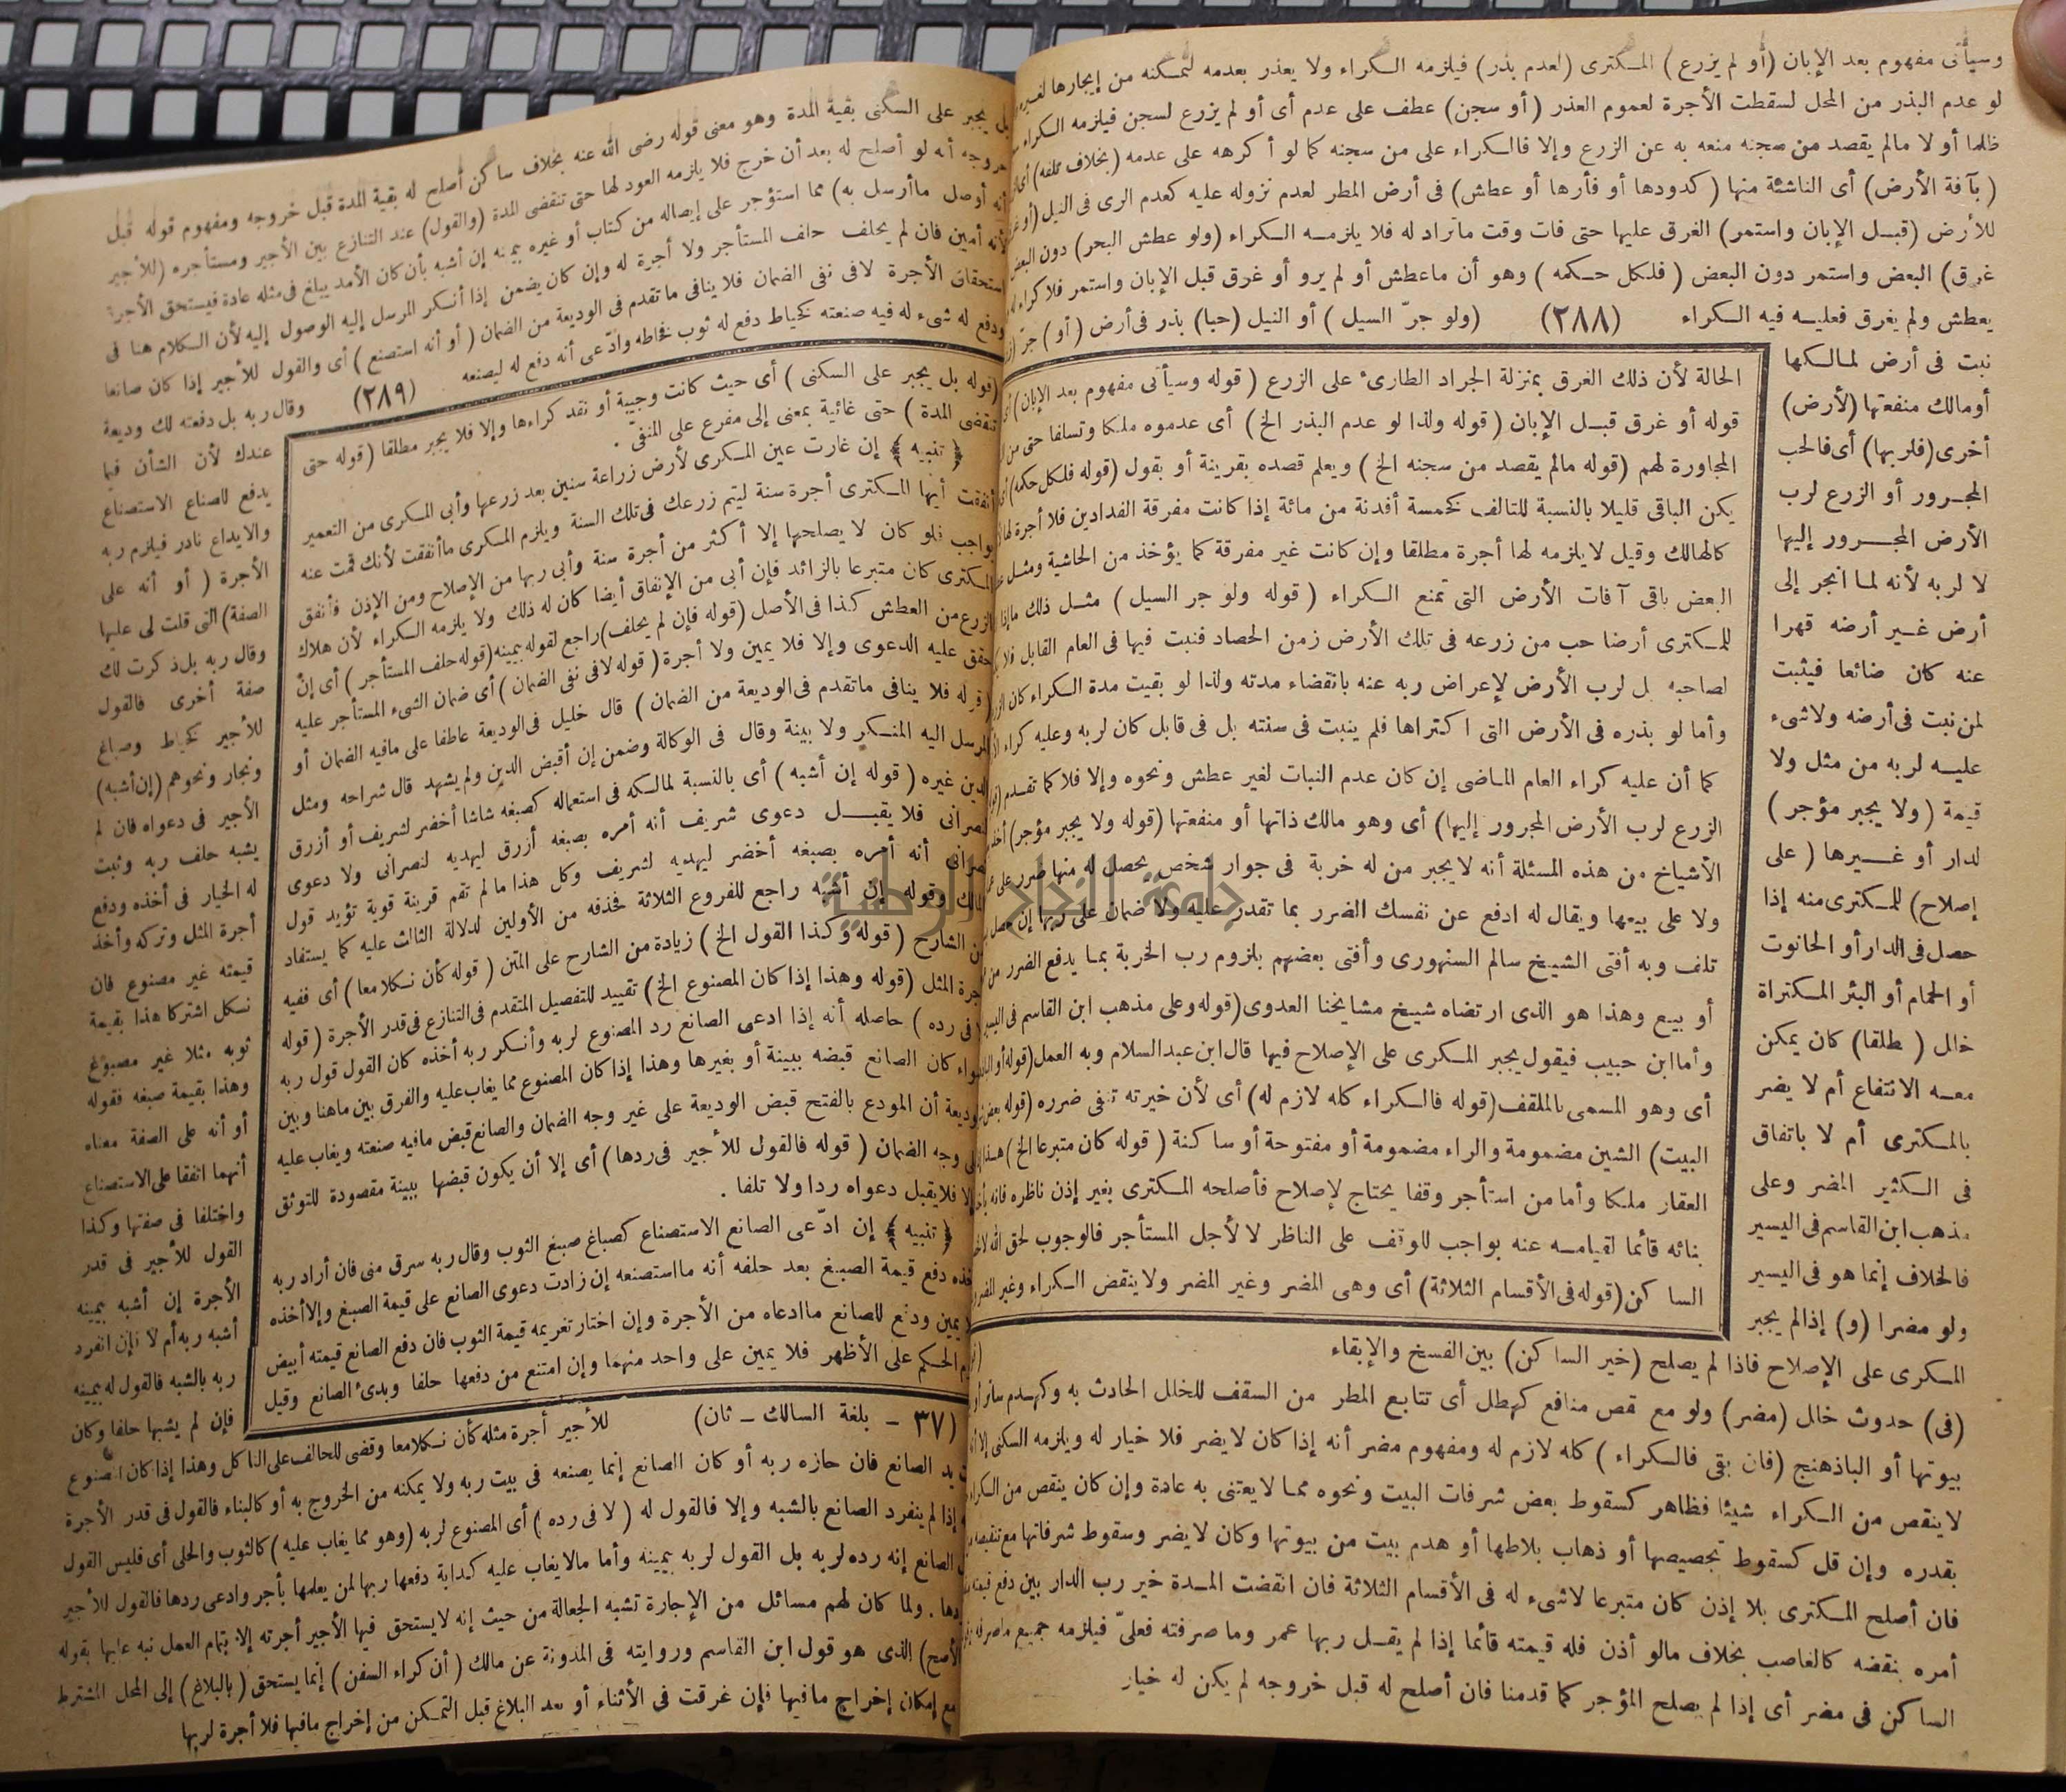 وسيأتى مفهوم بعد الإبان (أو لم يزرع) المكترى (لعدم بذر) فيلزمه الكراء ولا يعذر بعدمه لتمكنه من إيجارها لغيره
لو عدم البذر من المحل لسقطت الأجرة لعموم العذر (أو سجن) عطف على عدم أى أو لم يزرع لسجن فيلزمه الكراء
ظلما أو لا مالم يقصد من سجنه منعه به عن الزرع وإلا فالكراء على من سجنه كما لو أكرهه على عدمه (بخلاف تلفه)
(بآفة الأرض) أى الناشئة منها (كدودها أو فأرها أو عطش) فى أرض المطر لعدم نزوله عليه كعدم الرى فى النيل
للأرض (قبل الإبان واستمر) الغرق عليها حتى فات وقت ما تراد له فلا يلزمه الكراء (ولو عطش البحر) دون البعض
غرق) البعض واستمر دون البعض (فلكل حكمه) وهو أن ما عطش أو لم يرو أو غرق قبل الإبان واستمر فلا كراء
يعطش ولم يغرق فعليه فيه الكراء (٢٨٨) (ولو جرّ السيل) أو النيل (حبا) بذر فى أرض (أو) جرّ
نبت فى أرض لمالكها
أومالك منفعتها (لأرض)
أخرى (فلربها) أى فالحب
المجرور أو الزرع لرب
الأرض المجرور إليها
لا لربه لأنه لما انجر إلى
أرض غير أرضه قهرا
عنه كان ضائعا فيثبت
لمن نبت فى أرضه ولا شىء
عليه لربه من مثل ولا
قيمة (ولا يجبر مؤجر)
لدار أو غيرها (على
إصلاح) للمكترى منه إذا
حصل فى الدار أو الحانوت
أو الحمام أو البئر المكتراة
خلل (مطلقا) كان يمكن
معه الانتفاع أم لا يضر
بالمكترى أم لا باتفاق
فى الكثير المضر وعلى
مذهب ابن القاسم فى اليسير
فالخلاف إنما هو فى اليسير
ولو مضرا (و) إذا لم يجبر
الحالة لأن ذلك الغرق بمنزلة الجراد الطارئ على الزرع (قوله وسيأتى مفهوم بعد الإبان)
قوله أو غرق قبل الإبان (قوله ولذا لو عدم البذر الخ) أى عدموه ملكا وتسلفا حتى من
المجاورة لهم (قوله مالم يقصد من سجنه الخ) ويعلم قصده بقرينة أو بقول (قوله فلكل حكمه)
يكن الباقى قليلا بالنسبة للتالف كخمسة أفدنة من مائة إذا كانت مفرقة الفدادين فلا أجرة لها
كالهالك وقيل لا يلزمه لها أجرة مطلقا وإن كانت غير مفرقة كما يؤخذ من الحاشية ومثل
البعض باقى آفات الأرض التى تمنع الكراء (قوله ولو جر السيل) مثل ذلك ما إذا
للمكترى أرضا حب من زرعه فى تلك الأرض زمن الحصاد فنبت فيها فى العام القابل فلا
لصاحبه بل لرب الأرض لإعراض ربه عنه بانقضاء مدته ولذا لو بقيت مدة الكراء كان
وأما لو بذره فى الأرض التى اكتراها فلم ينبت فى سنته بل فى قابل كان لربه وعليه كراء
كما أن عليه كراء العام الماضى إن كان عدم النبات لغير عطش ونحوه وإلا فلا كما تقدم
الزرع لرب الأرض المجرور إليها) أى وهو مالك ذاتها أو منفعتها (قوله ولا يجبر مؤجر)
الأشياخ من هذه المسئلة أنه لا يجبر من له خربة فى جوار شخص يحصل له منها ضرر على
ولا على بيعها ويقال له ادفع عن نفسك الضرر بما تقدر عليه ولا ضمان على ربها إن حصل
تلف وبه أفتى الشيخ سالم السنهورى وأفتى بعضهم بلزوم رب الخربة بما يدفع الضرر من
أو بيع وهذا هو الذى ارتضاه شيخ مشايخنا العدوى (قوله وعلى مذهب ابن القاسم فى اليسير
وأما ابن حبيب فيقول يجبر المكرى على الإصلاح فيها قال ابن عبد السلام وبه العمل
أى وهو المسمى بالملقف (قوله فالكراء كله لازم له) أى لأن خيرته تنفى ضرره (قوله بعض
البيت) الشين مضمومة والراء مضمومة أو مفتوحة أو ساكنة (قوله كان متبرعا الخ)
العقار ملكا وأما من استأجر وقفا يحتاج لإصلاح فأصلحه المكترى بغير إذن ناظره فانه
بنائه قائما لقيامه عنه بواجب للوقف على الناظر لا لأجل المستأجر فالوجوب لحق الله
الساكن (قوله فى الأقسام الثلاثة) أى وهى المضر وغير المضر ولا ينقض الكراء وغير المضر
المكرى على الإصلاح فاذا لم يصلح (خير الساكن) بين الفسخ والإبقاء
(فى) حدوث خلل (مضر) ولو مع نقص منافع كهطل أى تتابع المطر من السقف للخلل الحادث به وكهدم ساتر
بيوتها أو الباذهنج (فان بقى فالكراء) كله لازم له ومفهوم مضر أنه إذا كان لا يضر فلا خيار له ويلزمه السكنى
لا ينقص من الكراء شيئا فظاهر كسقوط بعض شرفات البيت ونحوه مما لا يعتنى به عادة وإن كان ينقص من الكراء
بقدره وإن قل كسقوط تجصيصها أو ذهاب بلاطها أو هدم بيت من بيوتها وكان لا يضر وسقوط شرفاتها مع تنقيصه
فان أصلح المكترى بلا إذن كان متبرعا لا شىء له فى الأقسام الثلاثة فان انقضت المدة خير رب الدار بين دفع قيمته
أمره بنقضه كالغاصب بخلاف مالو أذن فله قيمته قائما إذا لم يقل ربها عمر وما صرفته فعلىّ فيلزمه جميع ما صرفه
الساكن فى مضر أى إذا لم يصلح المؤجر كما قدمنا فان أصلح له قبل خروجه لم يكن له خيار
بل يجبر على السكنى بقية المدة وهو معنى قوله رضى الله عنه بخلاف ساكن أصلح له بقية المدة قبل خروجه ومفهوم قوله قبل
خروجه أنه لو أصلح له بعد أن خرج فلا يلزمه العود لها حتى تنقضى المدة (والقول) عند التنازع بين الأجير ومستأجره (للأجير
أنه أوصل ما أرسل به) مما استؤجر على إيصاله من كتاب أو غيره بيمينه إن أشبه بأن كان الأمد يبلغ فى مثله عادة فيستحق الأجرة
لأنه أمين فان لم يحلف حلف المستأجر ولا أجرة له وإن كان يضمن إذا أنكر المرسل إليه الوصول إليه لأن الكلام هنا فى
استحقاق الأجرة لا فى نفى الضمان فلا ينافى ما تقدم فى الوديعة من الضمان (أو أنه استصنع) أى والقول للأجير إذا كان صانعا
ودفع له شىء له فيه صنعته كخياط دفع له ثوب فخاطه وادّعى أنه دفع له ليصنعه (٢٨٩) وقال ربه بل دفعته لك وديعة
عندك لأن الشأن فيما
يدفع للصناع الاستصناع
والايداع نادر فيلزم ربه
الأجرة (أو أنه على
الصفة) التى قلت لى عليها
وقال ربه بل ذكرت لك
صفة أخرى فالقول
للأجير كخياط وصباغ
ونجار ونحوهم (إن أشبه)
الأجير فى دعواه فان لم
يشبه حلف ربه وثبت
له الخيار فى أخذه ودفع
أجرة المثل وتركه وأخذ
قيمته غير مصنوع فان
نكل اشتركا هذا بقيمة
ثوبه مثلا غير مصبوغ
وهذا بقيمة صبغه فقوله
أو أنه على الصفة معناه
أنهما اتفقا على الاستصناع
واختلفا فى صفتها وكذا
القول للأجير فى قدر
الأجرة إن أشبه بيمينه
أشبه ربه أم لا فإن انفرد
ربه بالشبه فالقول له بيمينه
فإن لم يشبها حلفا وكان
(قوله بل يجبر على السكنى) أى حيث كانت وجيبة أو نقد كراءها وإلا فلا يجبر مطلقا (قوله حتى
تنقضى المدة) حتى غائية بمعنى إلى مفرع على المنفى.
﴿تنبيه﴾ إن غارت عين المكرى لأرض زراعة سنين بعد زرعها وأبى المكرى من التعمير
أنفقت أيها المكترى أجرة سنة ليتم زرعك فى تلك السنة ويلزم المكرى ما أنفقت لأنك قمت عنه
بواجب فلو كان لا يصلحها إلا أكثر من أجرة سنة وأبى ربها من الإصلاح ومن الإذن فأنفق
المكترى كان متبرعا بالزائد فإن أبى من الإنفاق أيضا كان له ذلك ولا يلزمه الكراء لأن هلاك
الزرع من العطش كذا فى الأصل (قوله فإن لم يحلف) راجع لقوله بيمينه (قوله حلف المستأجر) أى إن
حقق عليه الدعوى وإلا فلا يمين ولا أجرة (قوله لا فى نفى الضمان) أى ضمان الشىء المستأجر عليه
(قوله فلا ينافى ما تقدم فى الوديعة من الضمان) قال خليل فى الوديعة عاطفا على ما فيه الضمان أو
المرسل اليه المنكر ولا بينة وقال فى الوكالة وضمن إن أقبض الدين ولم يشهد قال شراحه ومثل
الدين غيره (قوله إن أشبه) أى بالنسبة لمالكه فى استعماله كصبغه شاشا أخضر لشريف أو أزرق
لنصرانى فلا يقبل دعوى شريف أنه أمره بصبغه أزرق ليهديه لنصرانى ولا دعوى
نصرانى أنه أمره بصبغه أخضر ليهديه لشريف وكل هذا ما لم تقم قرينة قوية تؤيد قول
المالك وقوله إن أشبه راجع للفروع الثلاثة فحذفه من الأولين لدلالة الثالث عليه كما يستفاد
من الشارح (قوله وكذا القول الخ) زيادة من الشارح على المتن (قوله كأن نكلا معا) أى ففيه
أجرة المثل (قوله وهذا إذا كان المصنوع الخ) تقييد للتفصيل المتقدم فى التنازع فى قدر الأجرة (قوله
لا فى رده) حاصله أنه إذا ادعى الصانع رد المصنوع لربه وأنكر ربه أخذه كان القول قول ربه
سواء كان الصانع قبضه ببينة أو بغيرها وهذا إذا كان المصنوع مما يغاب عليه والفرق بين ما هنا وبين
الوديعة أن المودع بالفتح قبض الوديعة على غير وجه الضمان والصانع قبض ما فيه صنعته ويغاب عليه
على وجه الضمان (قوله فالقول للأجير فى ردها) أى إلا أن يكون قبضها ببينة مقصودة للتوثق
وإلا فلا يقبل دعواه ردا ولا تلفا.
﴿تنبيه﴾ إن ادّعى الصانع الاستصناع كصباغ صبغ الثوب وقال ربه سرق منى فان أراد ربه
أخذه دفع قيمة الصبغ بعد حلفه أنه ما استصنعه إن زادت دعوى الصانع على قيمة الصبغ وإلا أخذه
بلا يمين ودفع للصانع ما ادعاه من الأجرة وإن اختار تغريمه قيمة الثوب فان دفع الصانع قيمته أبيض
الحكم على الأظهر فلا يمين على واحد منهما وإن امتنع من دفعها حلفا وبدئ الصانع وقيل
(٣٧ - بلغة السالك - ثان) للأجير أجرة مثله كأن نكلا معا وقضى للحالف على الناكل وهذا إذا كان المصنوع
يد الصانع فان حازه ربه أو كان الصانع إنما يصنعه فى بيت ربه ولا يمكنه من الخروج به أو كالبناء فالقول فى قدر الأجرة
إذا لم ينفرد الصانع بالشبه وإلا فالقول له (لا فى رده) أى المصنوع لربه (وهو مما يغاب عليه) كالثوب والحلى أى فليس القول
الصانع إنه رده لربه بل القول لربه بيمينه وأما ما لا يغاب عليه كدابة دفعها ربها لمن يعلمها بأجر وادعى ردها فالقول للأجير
ردها. ولما كان لهم مسائل من الإجارة تشبه الجعالة من حيث إنه لا يستحق فيها الأجير أجرته إلا بتمام العمل نبه عليها بقوله
الأصح) الذى هو قول ابن القاسم وروايته فى المدونة عن مالك (أن كراء السفن) إنما يستحق (بالبلاغ) إلى المحل المشترط
مع إمكان إخراج ما فيها فإن غرقت فى الأثناء أو بعد البلاغ قبل التمكن من إخراج ما فيها فلا أجرة لربها
جامعة النجاح الوطنية